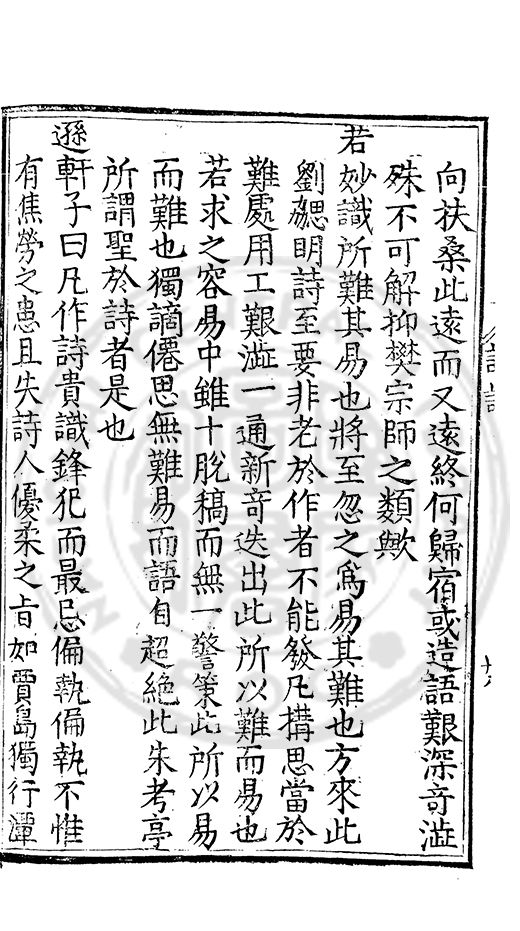 向扶桑此遠而又遠終何歸宿或造語艱深奇澁
殊不可解抑樊宗師之類歟
若妙識所難其易也將至忽之爲易其難也方來此
劉勰明詩至要非老於作者不能發凡搆思當於
難處用工艱澁一通新奇迭出此所以難而易也
若求之容易中雖十脫稿而無一警策此所以易
而難也獨謫僊思無難易而語自超絕此朱考亭
所謂聖於詩者是也
遜軒子曰凡作詩貴識鋒犯而最忌偏執偏執不惟
有焦勞之患且失詩人優柔之旨如賈島獨行潭